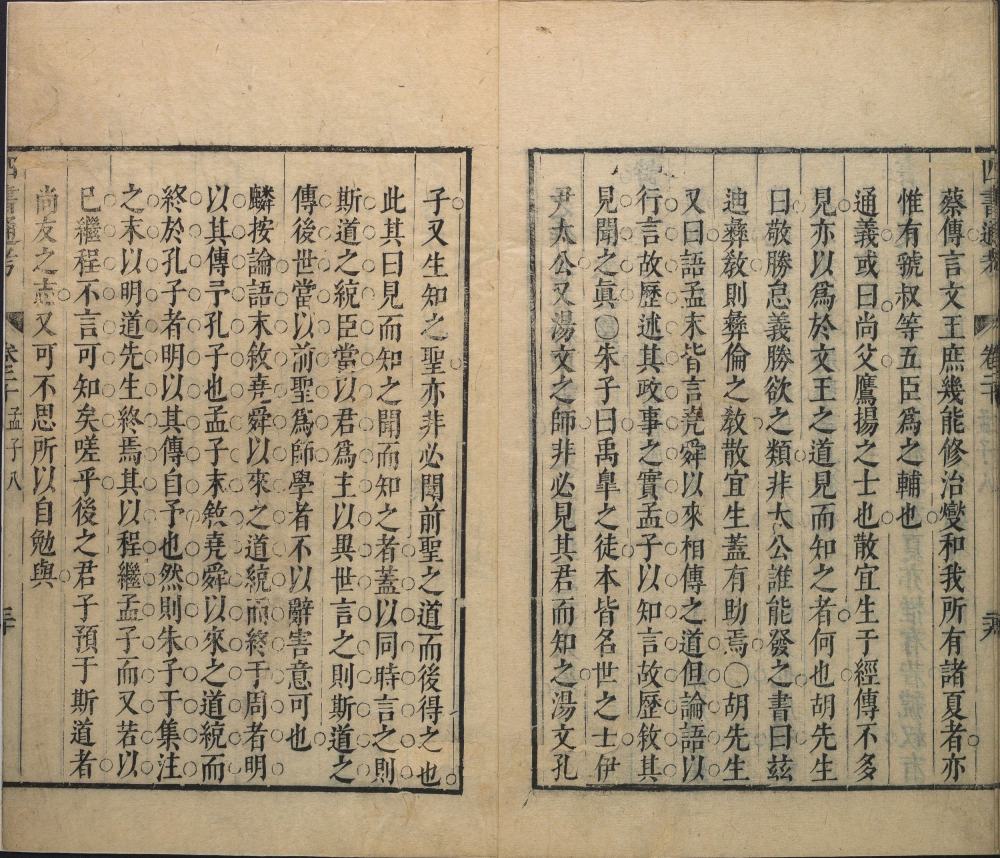 四書通考
卷二十
蔡傳言文王庶幾能修治燮和我所有諸夏者亦
惟有虢叔等五臣爲之輔也
通義或曰尚父鷹揚之士也散宜生于經傳不多
見亦以爲於文王之道見而知之者何也胡先生
曰敬勝怠義勝欲之類非太公誰能發之書曰茲
迪彝敎則彝倫之敎散宜生蓋有助焉○胡先生
又曰語孟末皆言堯舜以來相傳之道但論語以
行言故歷述其政事之實孟子以知言故歷敘其
見聞之眞○朱子曰禹臯之徒本皆名世之士伊
尹太公又湯文之師非必見其君而知之湯文孔
子又生知之聖亦非必聞前聖之道而後得之也
此其曰見而知之聞而知之者蓋以同時言之則
斯道之統臣當以君爲主以異世言之則斯道之
傳後世當以前聖爲師學者不以辭害意可也
麟按論語末敘堯舜以來之道統而終于周者明
以其傳予孔子也孟子末敘堯舜以來之道統而
終於孔子者明以其傳自予也然則朱子于集注
之末以明道先生終焉其以程繼孟子而又若以
已繼程不言可知矣嗟乎後之君子預于斯道者
尚友之志又可不思所以自勉與
四書通考
卷二十 孟子八
三十